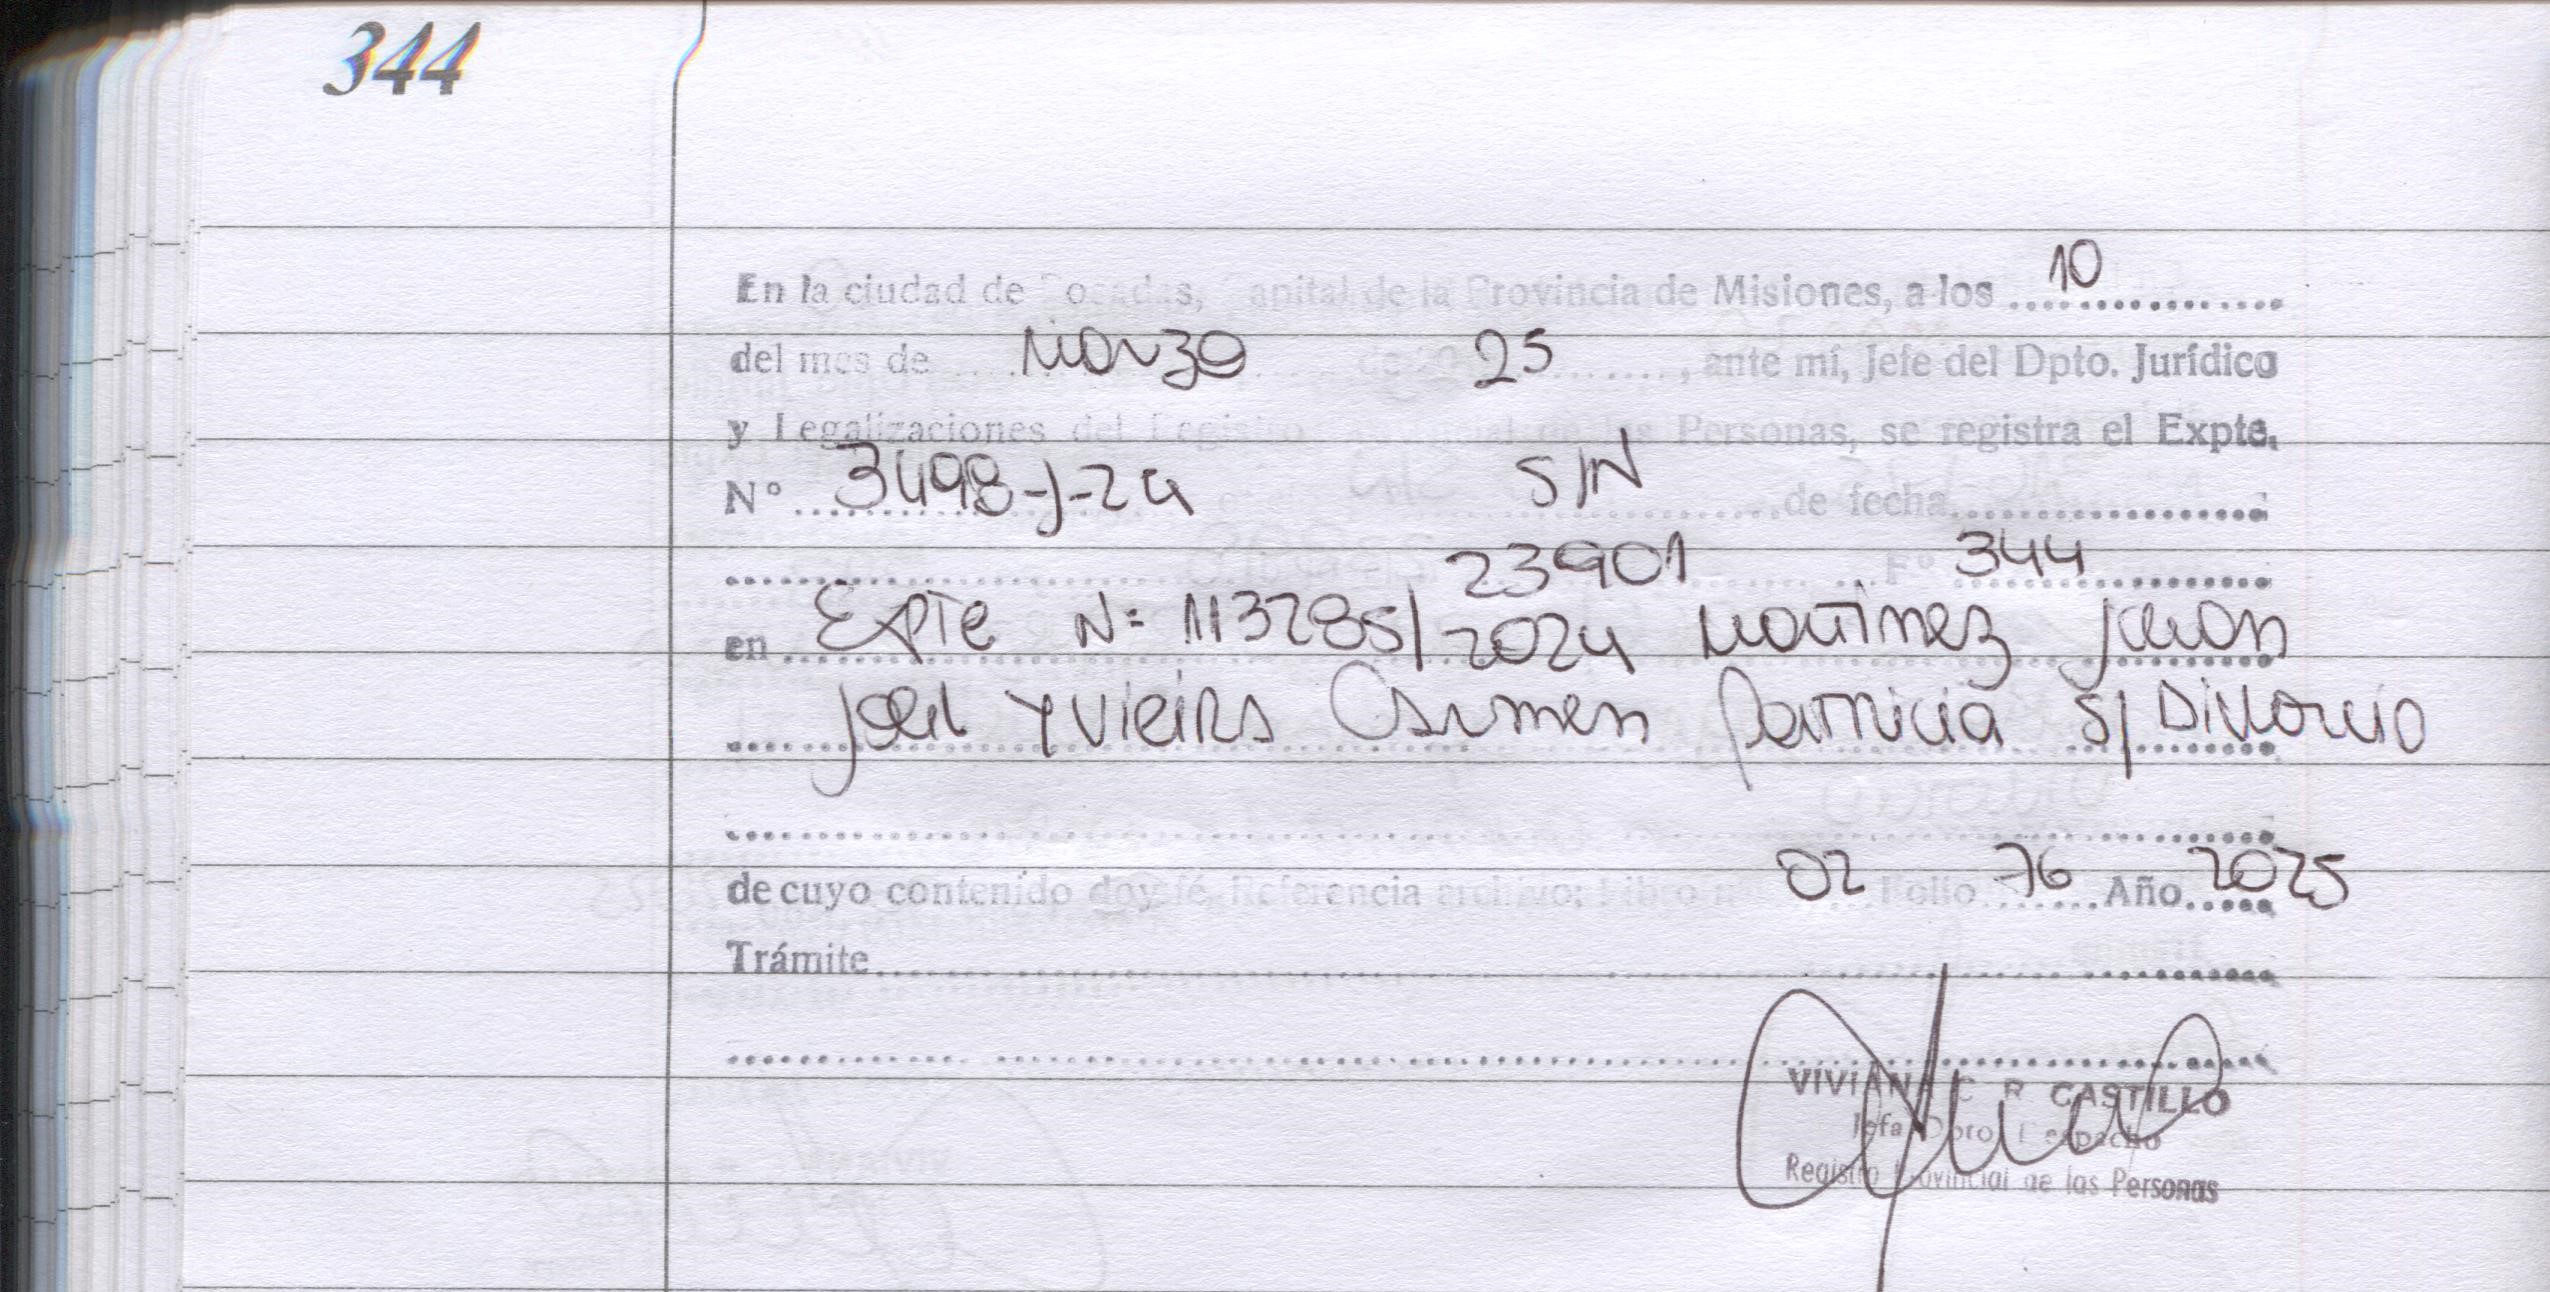 344
En la ciudad de Posadas, Capital de la Provincia de Misiones, a los 10
del mes de Marzo de 20 25, ante mí, Jefe del Dpto. Jurídico
y Legalizaciones del Registro Provincial de las Personas, se registra el Expte.
N° 3498-J-24 S/N de fecha
23901 F° 344
en Expte N= 113285/2024 Martinez Juan
Joel Y Vieira Carmen Patricia S/ Divorcio
de cuyo contenido doy fé. Referencia archivo: Libro n 02 Folio 76 Año 2025
Trámite
VIVIANA C R CASTILLO
Jefa Dpto Despacho
Registro Provincial de las Personas